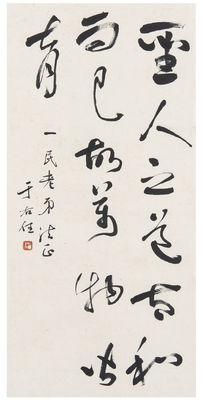 聖人之道和
而已故萬物皆
育
一民老弟法正
于右任